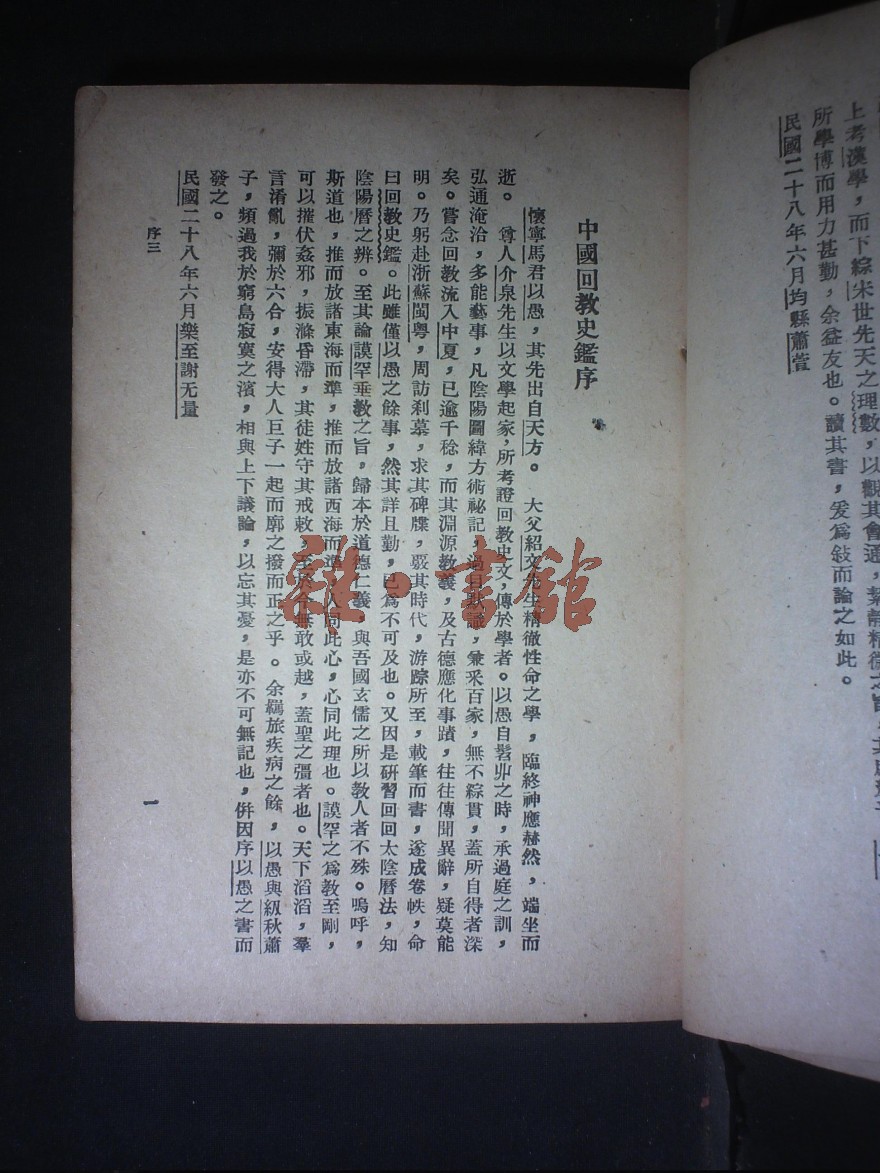 上考漢學，而下綜宋世先天之理數，以觀其會通，絜靜精微之旨，
所學博而用力甚勤，余益友也。讀其書，爰爲敍而論之如此。
民國二十八年六月均縣蕭萱
中國回教史鑑序
懷寧馬君以愚，其先出自天方。大父紹文先生精徹性命之學，臨終神應赫然，端坐而
逝。尊人介泉先生以文學起家，所考證回教史文，傳於學者。以愚自髫丱之時，承過庭之訓，
弘通淹洽，多能藝事，凡陰陽圖緯方術祕記，過目默識，兼采百家，無不綜貫，蓋所自得者深
矣。嘗念回教流入中夏，已逾千稔，而其淵源教義，及古德應化事蹟，往往傳聞異辭，疑莫能
明。乃躬赴浙蘇閩粵，周訪刹墓，求其碑牒，覈其時代，游踪所至，載筆而書，遂成卷帙，命
曰回教史鑑。此雖僅以愚之餘事，然其詳且勤，已爲不可及也。又因是研習回回太陰曆法，知
陰陽曆之辨。至其論謨罕垂教之旨，歸本於道德仁義，與吾國玄儒之所以教人者不殊。嗚呼，
斯道也，推而放諸東海而準，推而放諸西海而準，人同此心，心同此理也。謨罕之爲教至剛，
可以摧伏姦邪，振滌昏滯，其徒姓守其戒敕，至於今無敢或越，蓋聖之彊者也。天下滔滔，羣
言淆亂，彌於六合，安得大人巨子一起而廓之撥而正之乎。余羈旅疾病之餘，以愚與紉秋蕭
子，頻過我於窮島寂寞之濱，相與上下議論，以忘其憂，是亦不可無記也，併因序以愚之書而
發之。
民國二十八年六月樂至謝无量
序三
一
雜·書館